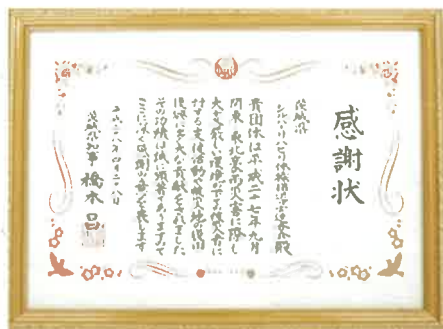 感謝状
茨城県
シルバーリハビリ体操指導士連合会殿
貴団体は平成二十七年九月
関東・東北豪雨災害に際し
対する支援活動や被災地の復旧
復興に多大な貢献をされました
その功績は誠に顕著でありますので
ここに深く感謝の意を表します
平成二十八年四月二十八日
茨城県知事 橋本昌